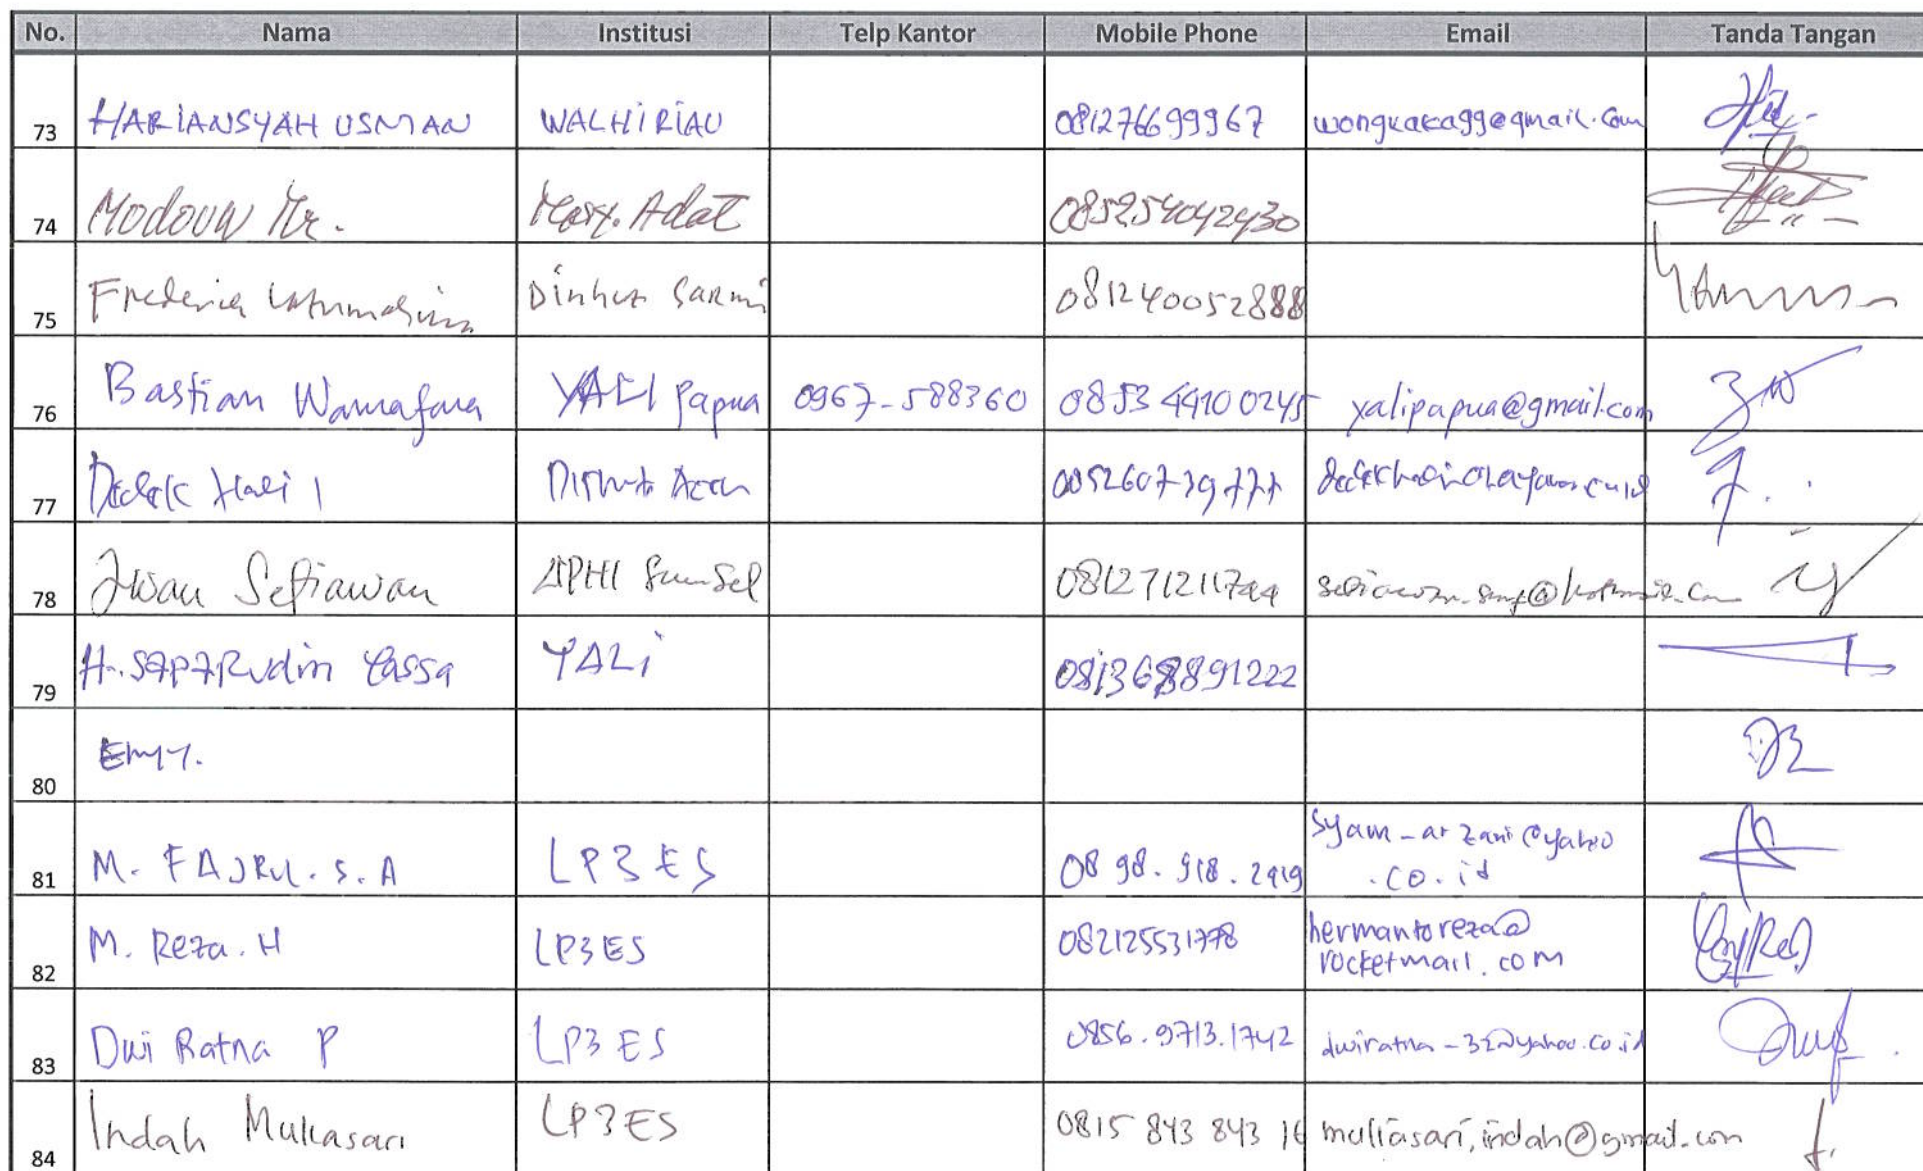 No. Nama Institusi Telp Kantor Mobile Phone Email Tanda Tangan
73 HARIANSYAH USMAN WALHI RIAU 081276699967 wongkaka99@gmail.com
74 Modouw Mr. Masy. Adat 085254042430
75 Frederick Dinhut Sarmi 081240052888
76 Bastian Wamafma YALI Papua 0967-588360 0853 44100245 yalipapua@gmail.com
77 Dedek Hadi Dishut Aceh
78 Iwan Setiawan APHI Sumsel
79 H. SAPARudin YALi
80 Emy.
81 M. FAJRUL. S. A LP3ES 08 98. 918. 2919 syam_ar zani@yahoo
.co.id
82 M. Reza. H LP3ES 082125531778 hermantoreza@
rocketmail.com
83 Dwi Ratna P LP3ES 0856.9713.1742 dwiratna_32@yahoo.co.id
84 Indah Muliasari LP3ES 0815 843 843 16 muliasari.indah@gmail.com